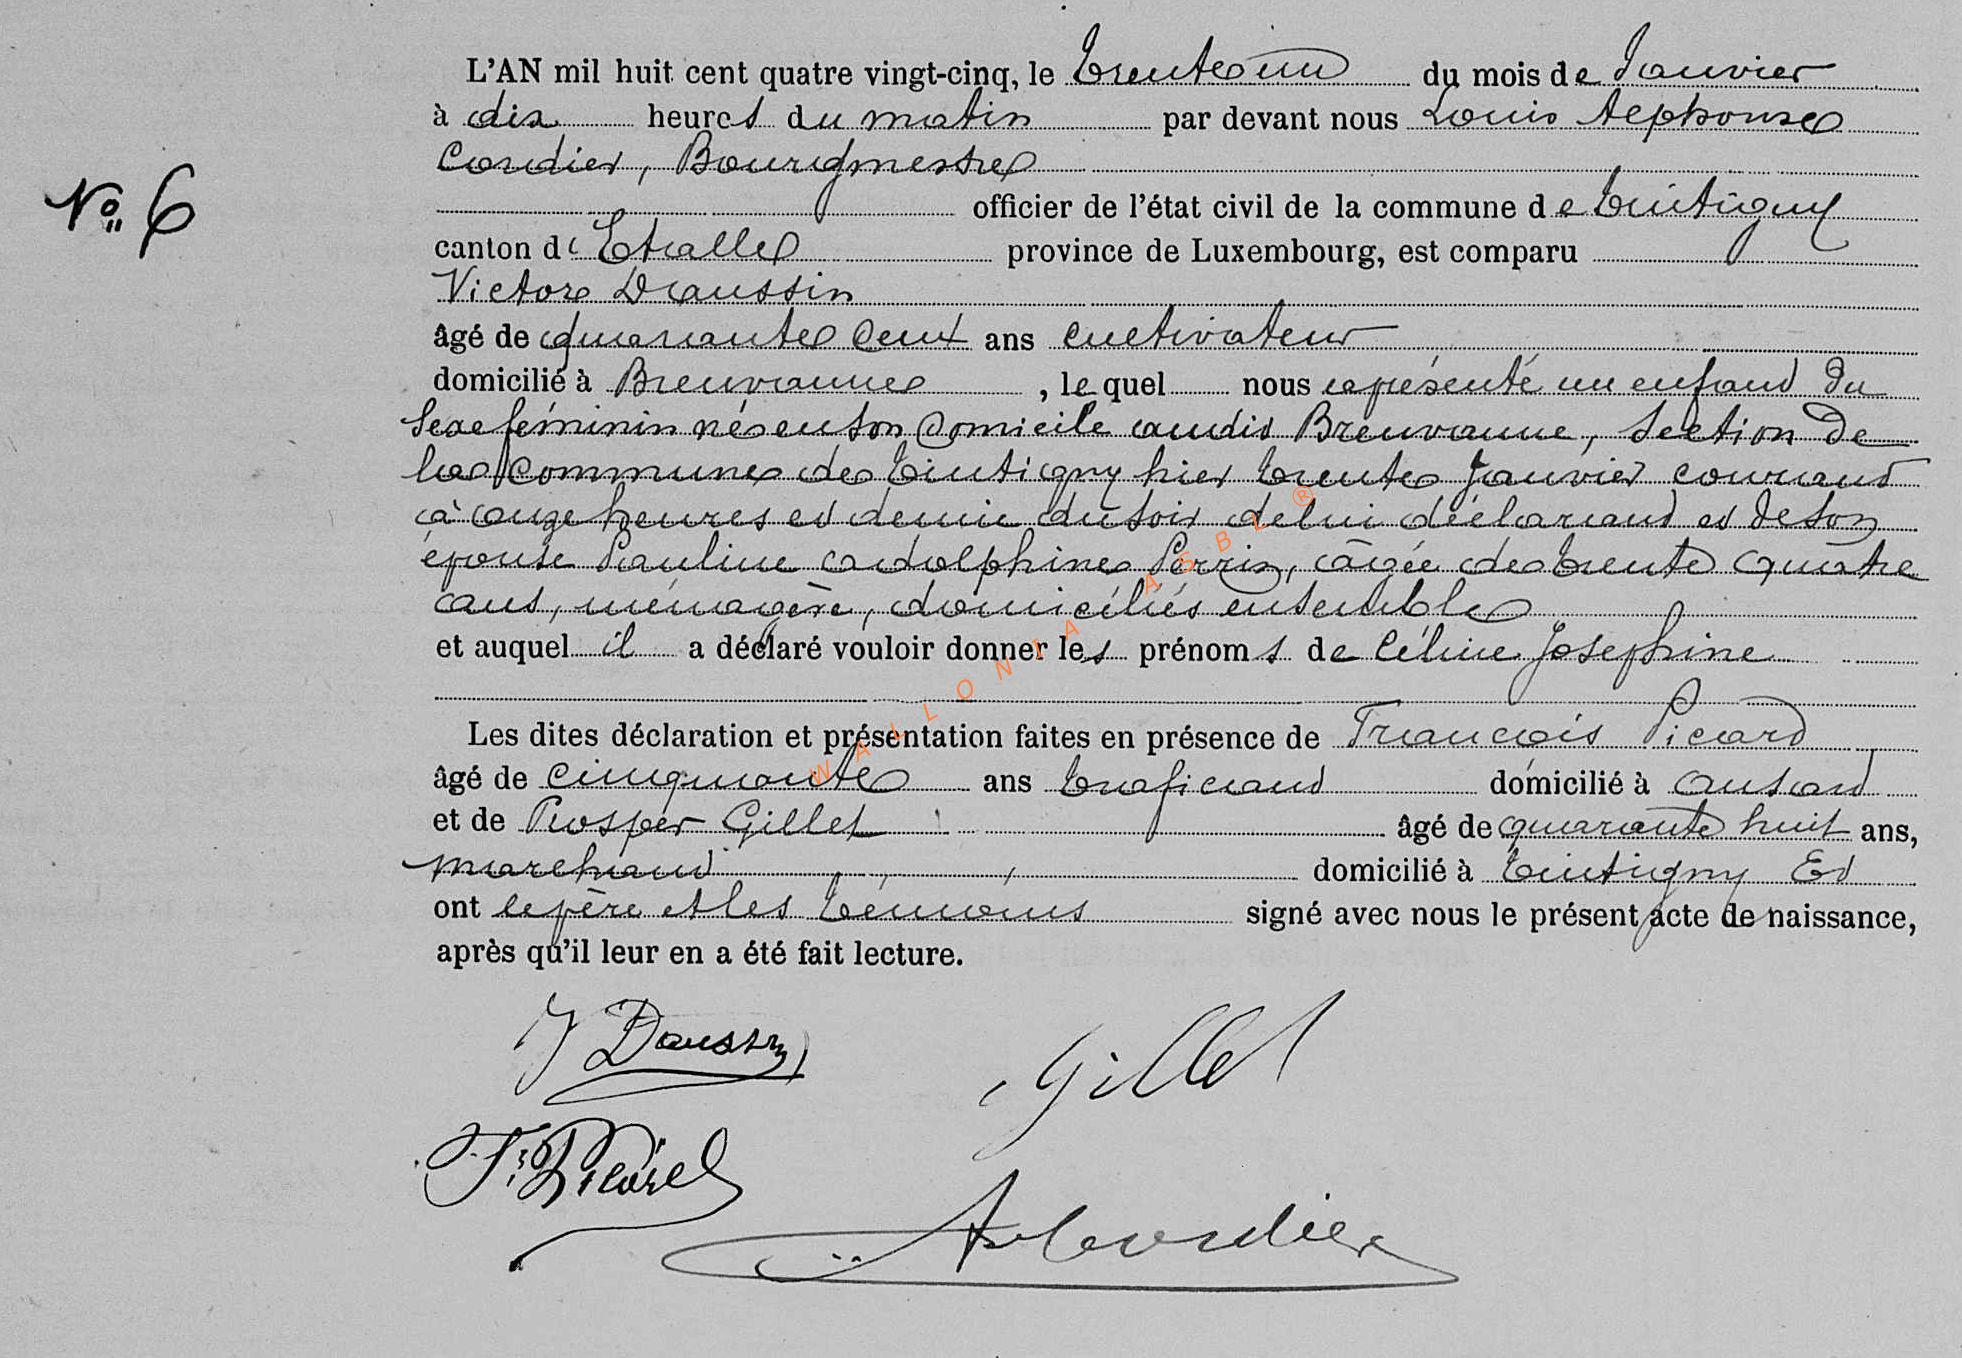 L'AN mil huit cent quatre vingt-cinq, le trente un du mois de Janvier
à dix heures du matin par devant nous Louis Alphonse
Cordier, Bourgmestre
N° 6
officier de l'état civil de la commune de Tintigny
canton d'Etalle province de Luxembourg, est comparu
Victor Daussin
âgé de quarante deux ans cultivateur
domicilié à Breuvanne, le quel nous représenté un enfand du
sexe féminin né en son domicile audit Breuvanne, section de
la commune de Tintigny hier trente Janvier courand
à onze heures et demie du soir de lui déclarand et de son
épouse Pauline Adolphine Perrin, âgée de trente quatre
ans, ménagère, domiciliés ensemble
et auquel il a déclaré vouloir donner les prénoms de Céline Josephine
Les dites déclaration et présentation faites en présence de François Picard
âgé de cinquante ans trafiquand domicilié à Ansart
et de Prosper Gillet âgé de quarante huit ans,
marchand domicilié à Tintigny Et
ont le père et les témoins signé avec nous le présent acte de naissance,
après qu'il leur en a été fait lecture.
Daussin Gillet
Fr. Picard
A Cordier
WALLONIA ASBL ®